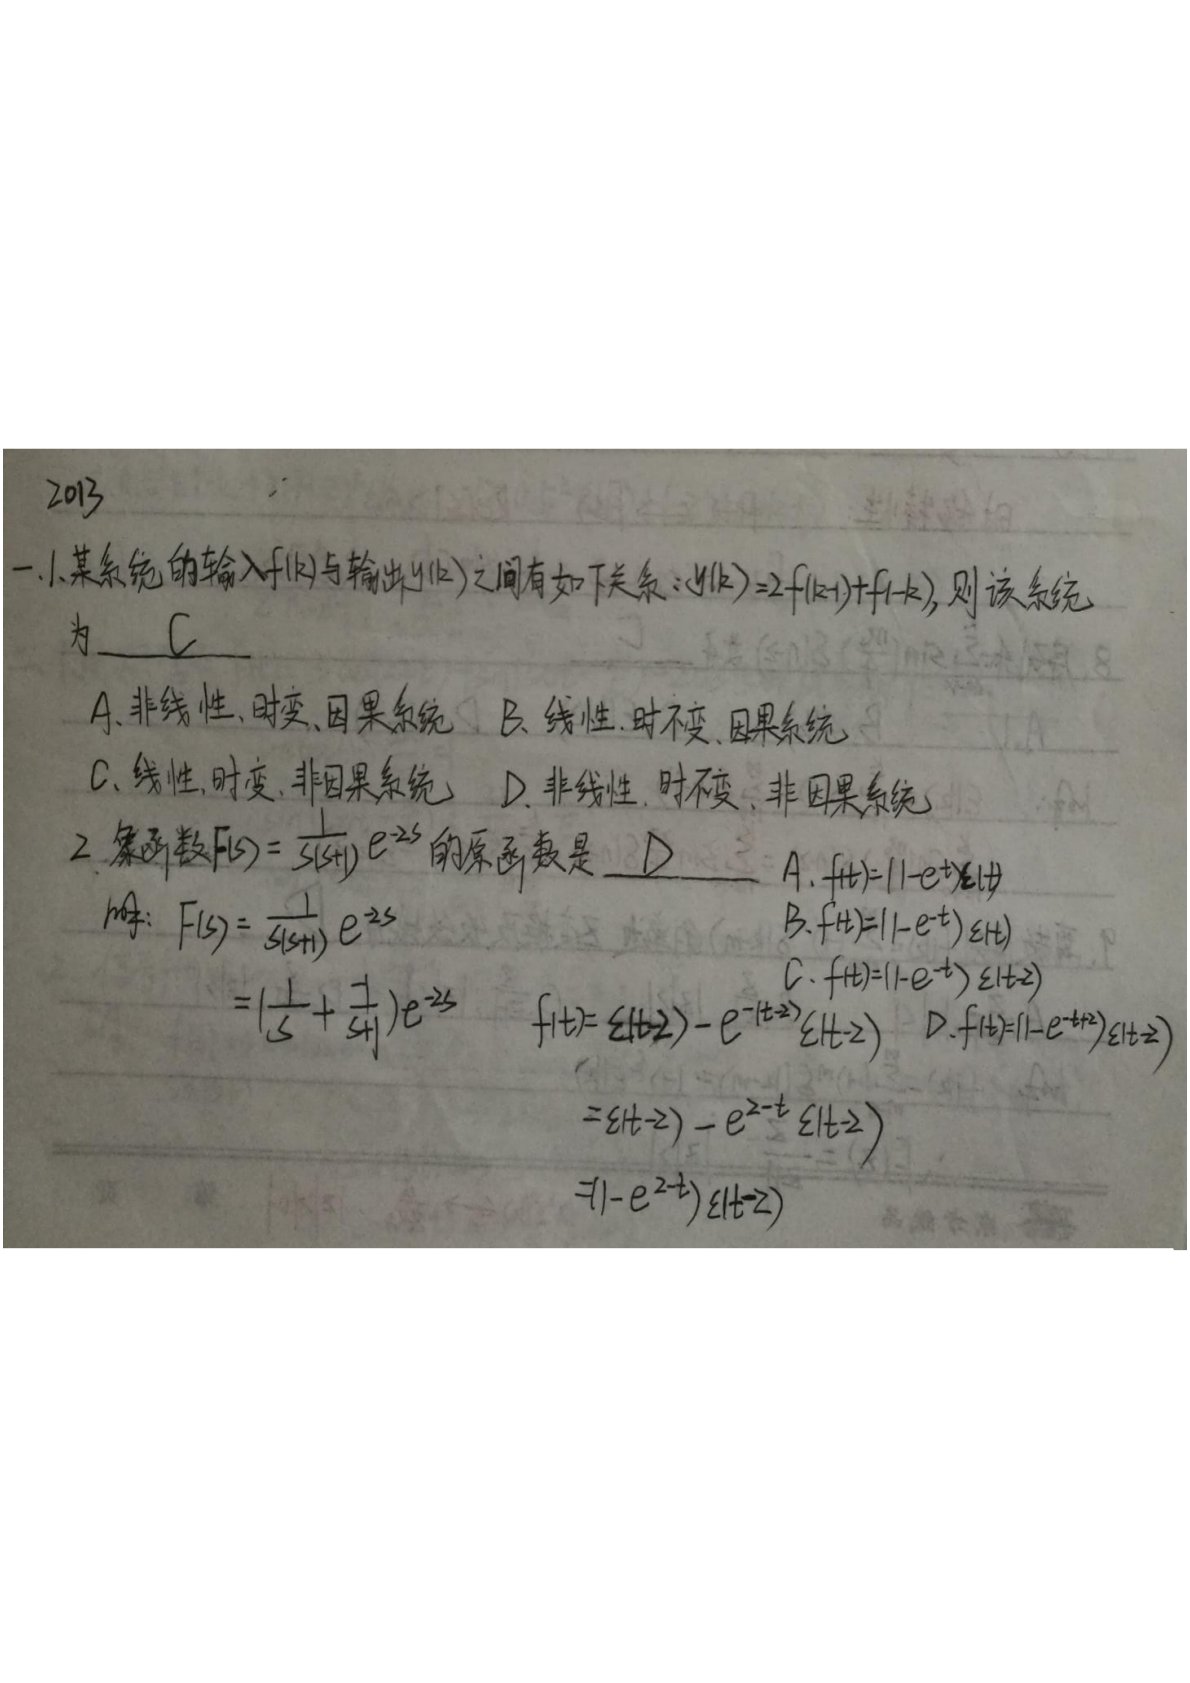 2013
一.1.某系统的输入f(k)与输出y(k)之间有如下关系:y(k)=2f(k-1)+f(1-k),则该系统
为 C
A、非线性、时变、因果系统 B、线性.时不变、因果系统
C、线性,时变、非因果系统 D、非线性,时不变、非因果系统
2.象函数F(s)=1/(s(s+1)) e^(-2s) 的原函数是 D A、f(t)=(1-e^t)ε(t)
解: F(s)=1/(s(s+1)) e^(-2s) B.f(t)=(1-e^(-t))ε(t)
C.f(t)=(1-e^(-t))ε(t-2)
=(1/s+(-1)/(s+1))e^(-2s) f(t)=ε(t-2)-e^(-(t-2))ε(t-2) D.f(t)=(1-e^(-t+2))ε(t-2)
=ε(t-2)-e^(2-t)ε(t-2)
=(1-e^(2-t))ε(t-2)